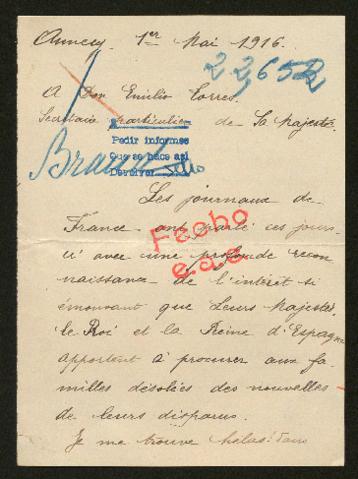 Annecy. 1er Mai 1916.
22,652
A Don Emilio Torres.
Secrétaire particulier de Sa Majesté.
Pedir informes
Que se hace así
Devolver
Les journaux de
France ont parlé ces jours
ci avec une profonde recon
naissance de l'intérêt si
Fecho
e.a.c.
émouvant que Leurs Majestés
le Roi et la Reine d'Espagne
apportent à procurer aux fa
milles désolées des nouvelles
de leurs disparus.
Je me trouve hélas! dans